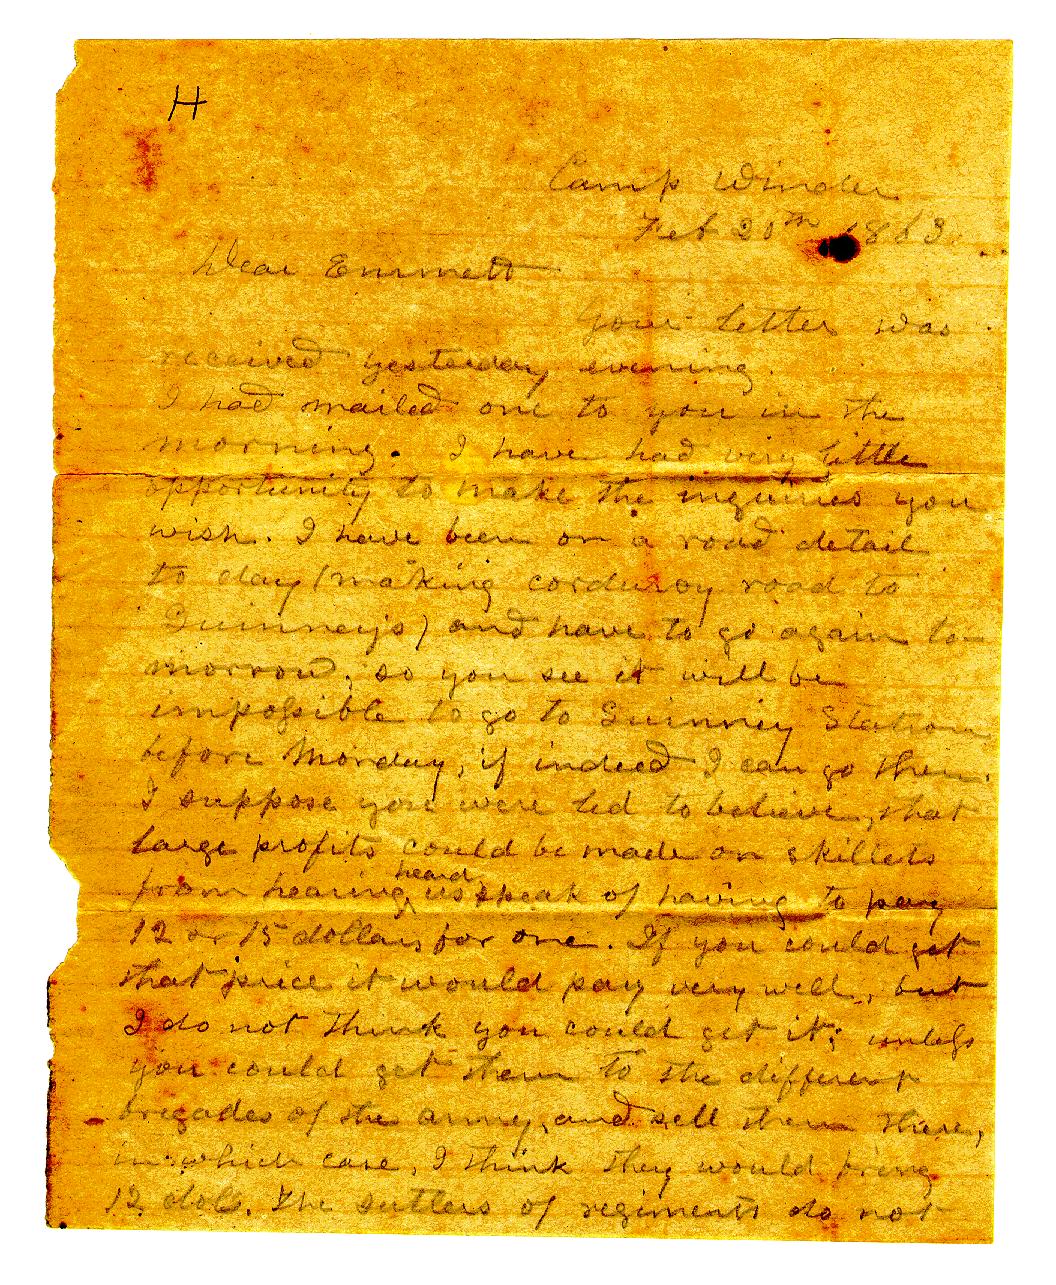 H
Camp Winder
Feb 20th 1863.
Dear Emmett
Your letter was
received yesterday evening.
I had mailed one to you in the
morning. I have had very little
opportunity to make the inquiries you
wish. I have been on a road detail
to day (making corduroy road to
Guinney's) and have to go again to-
morrow, so you see it will be
impossible to go to Guinney Station
before Monday, if indeed I can go then.
I suppose you were led to believe, that
large profits could be made on skillets
heard
from hearing us speak of having to pay
12 or 15 dollars for one. If you could get
that price it would pay very well, but
I do not think you could get it; unless
you could get them to the different
brigades of the army, and sell them there,
in which case, I think they would bring
12 dol. The sutlers of regiments do not